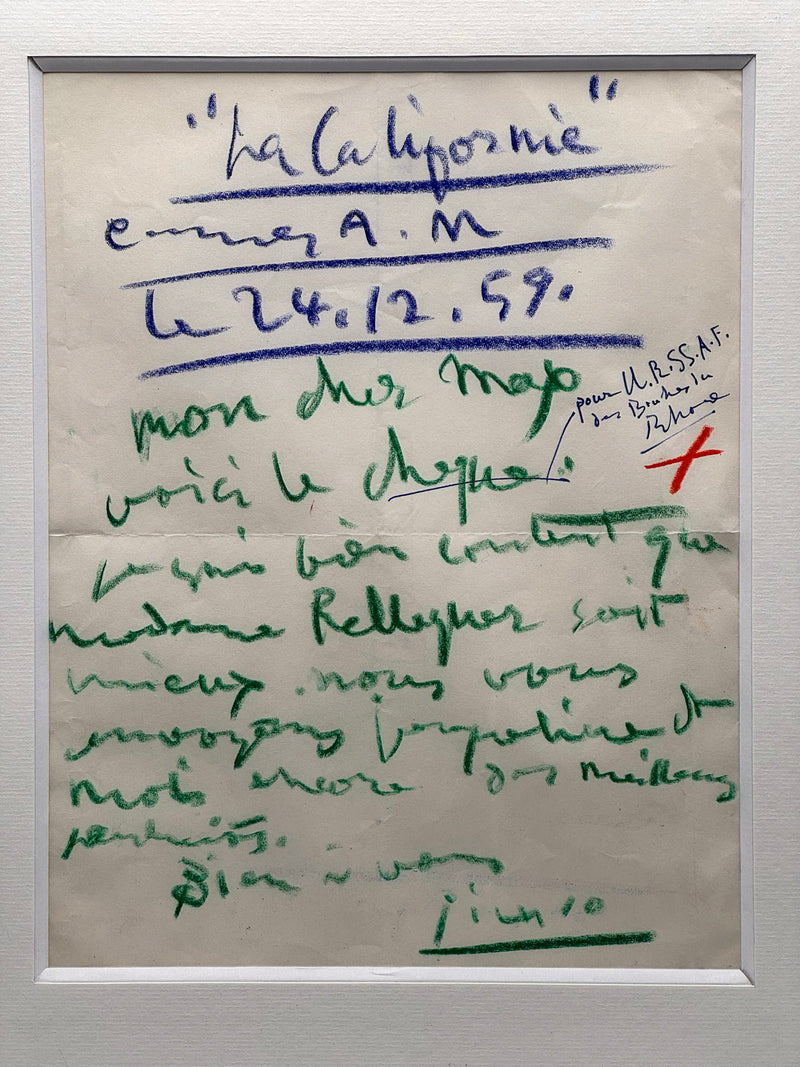 "La Californie"
Cannes A.M
le 24.12.59.
mon cher Max
pour U.R.SS.A.F.
des Bouches du
Rhone
voici le cheque.
je suis bien content que
madame Pellequer soit
mieux. nous vous
envoyons jacqueline et
moi encore des meilleurs
souhaits.
Bien à vous
Picasso